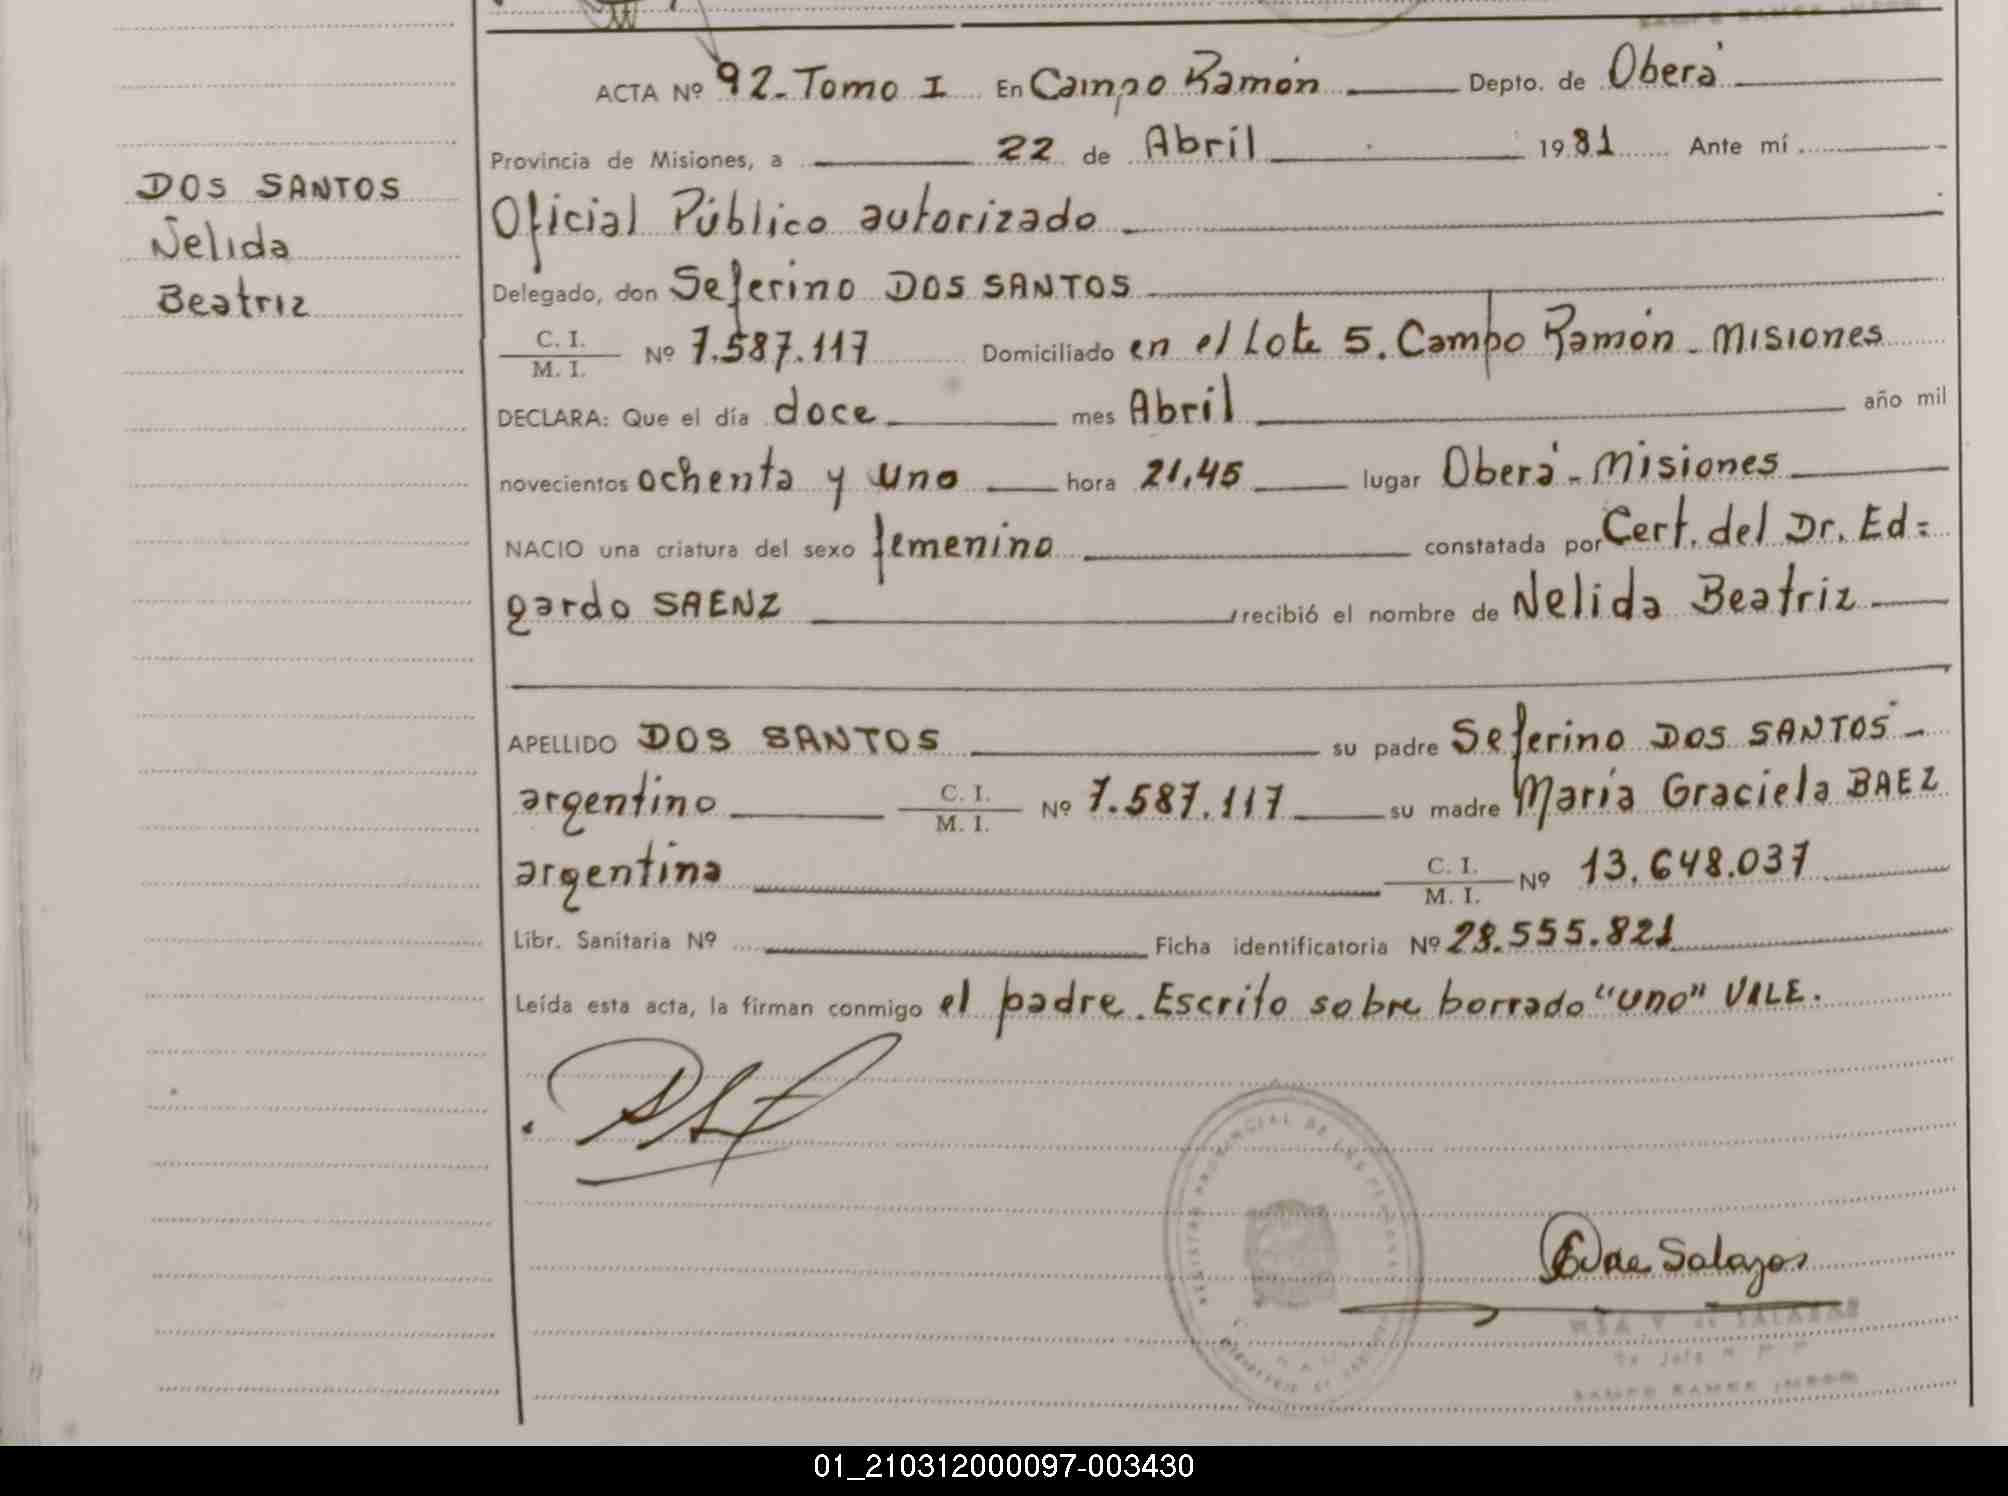 ACTA Nº 92-Tomo I En Campo Ramón Depto. de Oberá
Provincia de Misiones, a 22 de Abril 1981 Ante mí
DOS SANTOS
Nelida
Beatriz
Oficial Público autorizado
Delegado, don Seferino DOS SANTOS
C. I.
M. I.
Nº 7.587.117 Domiciliado en el Lote 5. Campo Ramón - Misiones
DECLARA: Que el día doce mes Abril año mil
novecientos ochenta y uno hora 21,45 lugar Oberá - Misiones
NACIO una criatura del sexo femenino constatada por Cert. del Dr. Ed=
gardo SAENZ recibió el nombre de Nelida Beatriz
APELLIDO DOS SANTOS su padre Seferino DOS SANTOS -
argentino C. I. M. I. Nº 7.587.117 su madre María Graciela BAEZ
argentina C. I. M. I. Nº 13.648.037
Libr. Sanitaria Nº Ficha identificatoria Nº 28.555.821
Leída esta acta, la firman conmigo el padre. Escrito sobre borrado "uno" VALE.
de Salazar
DE SALAZAR
01_210312000097-003430